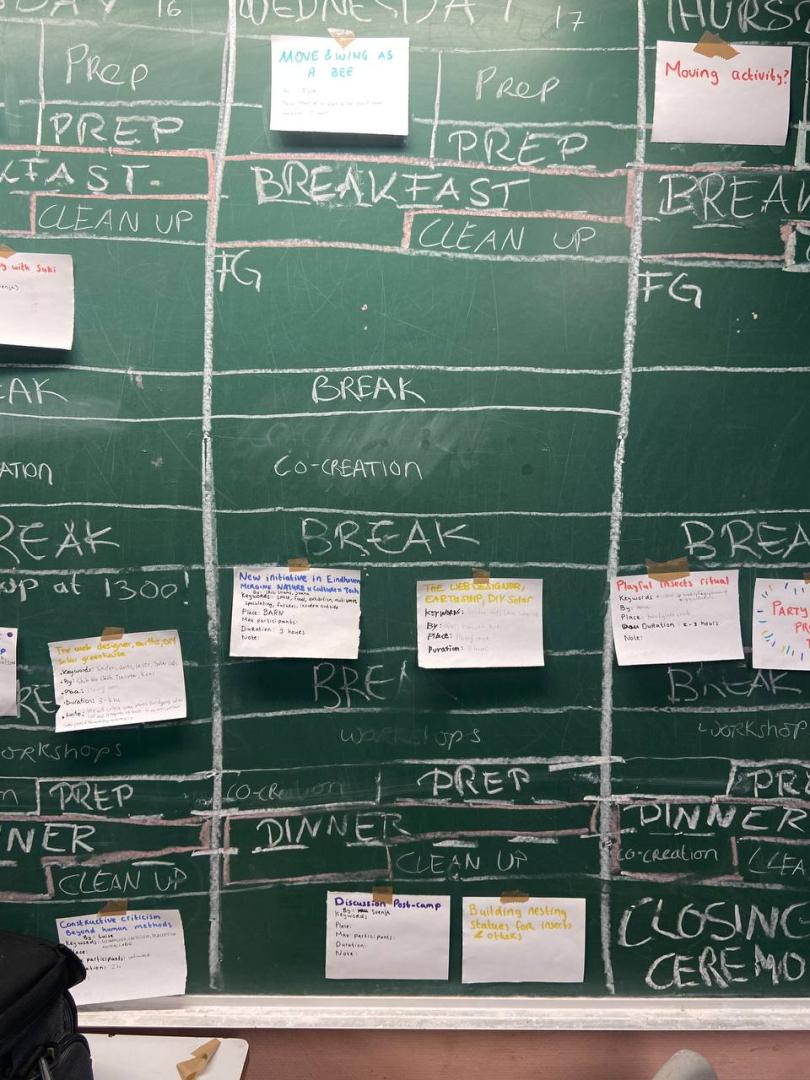 DAY 16
Prep
PREP
KFAST
CLEAN UP
g with Suki
EAK
ATION
REAK
op at 1300!
The web designer, earths, DIY
Solar greenhouse
Keywords:
By:
Place:
Duration: 3-4 hr
Note:
RE
orkshops
n
PREP
NNER
CLEAN UP
Constructive criticism
Beyond human methods
By: Luise
Keywords:
Place:
participants: unlimited
ation: 2h
WEDNESDAY 17
MOVE & WING AS
A BEE
Prep
PREP
BREAKFAST
CLEAN UP
FG
BREAK
CO-CREATION
BREAK
New initiative in Eindhoven
MERGING NATURE x Culture x Tech
Place: BARN
Max participants:
Duration: 3 hours
Note:
THE WEB DESIGNER,
EARTHSHIP, DIY Solar
Keywords:
By:
Place:
Duration:
BREA
workshops
co-creation
PREP
DINNER
CLEAN UP
Discussion Post-camp
By: Svenja
Keywords:
Place:
Max participants:
Duration:
Note:
Building nesting
statues for insects
& others
THURS
Moving activity?
BREA
FG
BREA
Playful Insects ritual
Keywords
By:
Place:
Duration: 2-3 hours
Note:
PARTY
PR
BREAK
workshop
PRE
DINNER
co-creation
CLEA
CLOSING
CEREMO